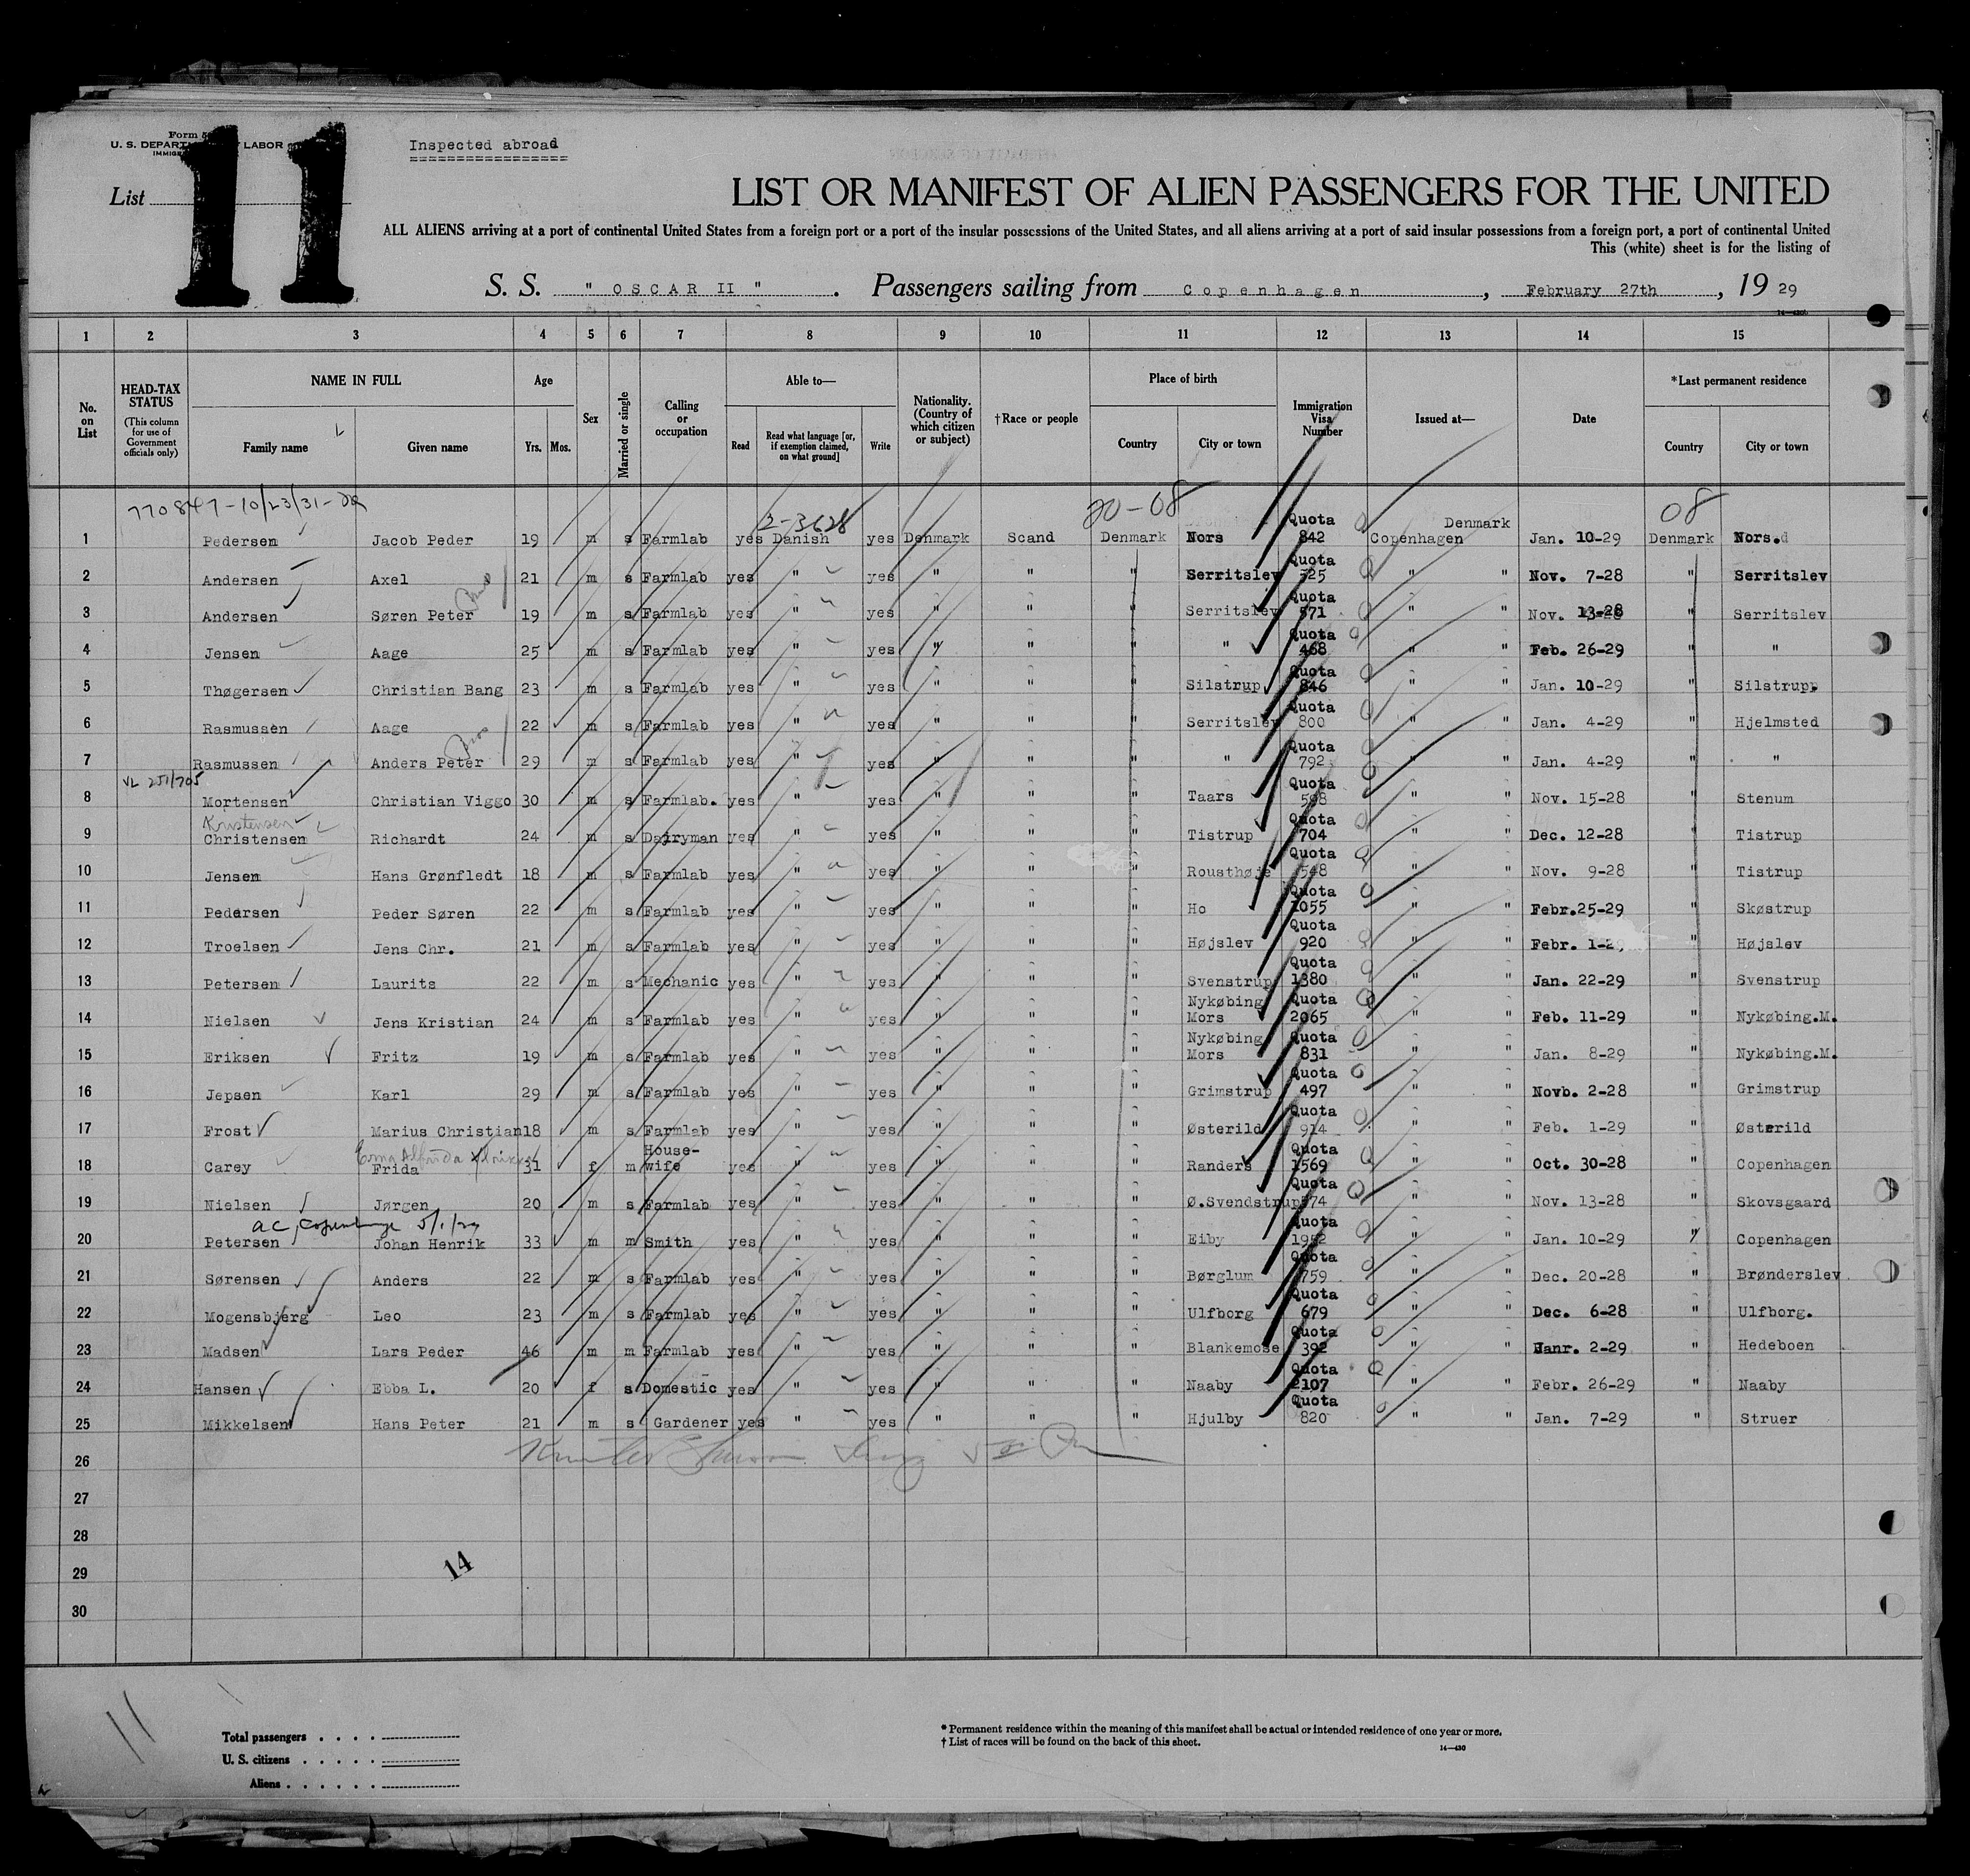 Form
U. S. DEPARTMENT LABOR
Inspected abroad
List
11
LIST OR MANIFEST OF ALIEN PASSENGERS FOR THE UNITED
ALL ALIENS arriving at a port of continental United States from a foreign port or a port of the insular possessions of the United States, and all aliens arriving at a port of said insular possessions from a foreign port, a port of continental United
This (white) sheet is for the listing of
S. S. " OSCAR II " . Passengers sailing from Copenhagen , February 27th , 19 29
1 2 3 4 5 6 7 8 9 10 11 12 13 14 15
No. on List HEAD-TAX STATUS (This column for use of Government officials only) NAME IN FULL Family name Given name Age Yrs. Mos. Sex Married or single Calling or occupation Able to— Read Read what language [or, if exemption claimed, on what ground] Write Nationality. (Country of which citizen or subject) †Race or people Place of birth Country City or town Immigration Visa Number Issued at— Date *Last permanent residence Country City or town
770847-10/23/31- 2-3628 20-08 08
1 Pedersen Jacob Peder 19 m s Farmlab yes Danish yes Denmark Scand Denmark Nors Quota 842 Copenhagen Denmark Jan. 10-29 Denmark Nors.
2 Andersen Axel 21 m s Farmlab yes " yes " " " Serritslev Quota 525 " " Nov. 7-28 " Serritslev
3 Andersen Søren Peter 19 m s Farmlab yes " yes " " " Serritslev Quota 571 " " Nov. 13-28 " Serritslev
4 Jensen Aage 25 m s Farmlab yes " yes " " " " Quota 468 " " Feb. 26-29 " "
5 Thøgersen Christian Bang 23 m s Farmlab yes " yes " " " Silstrup Quota 846 " " Jan. 10-29 " Silstrup.
6 Rasmussen Aage 22 m s Farmlab yes " yes " " " Serritslev Quota 800 " " Jan. 4-29 " Hjelmsted
7 Rasmussen Anders Peter 29 m s Farmlab yes " yes " " " " Quota 792 " " Jan. 4-29 " "
VL 251/705
8 Mortensen Christian Viggo 30 m s Farmlab. yes " yes " " " Taars Quota 598 " " Nov. 15-28 " Stenum
Kristensen
9 Christensen Richardt 24 m s Dairyman yes " yes " " " Tistrup Quota 704 " " Dec. 12-28 " Tistrup
10 Jensen Hans Grønfledt 18 m s Farmlab yes " yes " " " Rousthøje Quota 548 " " Nov. 9-28 " Tistrup
11 Pedersen Peder Søren 22 m s Farmlab yes " yes " " " Ho Quota 1055 " " Febr.25-29 " Skøstrup
12 Troelsen Jens Chr. 21 m s Farmlab yes " yes " " " Højslev Quota 920 " " Febr. 1-29 " Højslev
13 Petersen Laurits 22 m s Mechanic yes " yes " " " Svenstrup Quota 1380 " " Jan. 22-29 " Svenstrup
14 Nielsen Jens Kristian 24 m s Farmlab yes " yes " " " Nykøbing Mors Quota 2065 " " Feb. 11-29 " Nykøbing.M.
15 Eriksen Fritz 19 m s Farmlab yes " yes " " " Nykøbing Mors Quota 831 " " Jan. 8-29 " Nykøbing.M.
16 Jepsen Karl 29 m s Farmlab yes " yes " " " Grimstrup Quota 497 " " Novb. 2-28 " Grimstrup
17 Frost Marius Christian 18 m s Farmlab yes " yes " " " Østerild Quota 914 " " Feb. 1-29 " Østerild
18 Carey Frida 31 f m House-wife yes " yes " " " Randers Quota 1569 " " Oct. 30-28 " Copenhagen
19 Nielsen Jørgen 20 m s Farmlab yes " yes " " " Ø.Svendstrup Quota 574 " " Nov. 13-28 " Skovsgaard
20 Petersen Johan Henrik 33 m m Smith yes " yes " " " Eiby Quota 1952 " " Jan. 10-29 " Copenhagen
21 Sørensen Anders 22 m s Farmlab yes " yes " " " Børglum Quota 759 " " Dec. 20-28 " Brønderslev
22 Mogensbjerg Leo 23 m s Farmlab yes " yes " " " Ulfborg Quota 679 " " Dec. 6-28 " Ulfborg.
23 Madsen Lars Peder 46 m m Farmlab yes " yes " " " Blankemose Quota 392 " " Janr. 2-29 " Hedeboen
24 Hansen Ebba L. 20 f s Domestic yes " yes " " " Naaby Quota 2107 " " Febr. 26-29 " Naaby
25 Mikkelsen Hans Peter 21 m s Gardener yes " yes " " " Hjulby Quota 820 " " Jan. 7-29 " Struer
26
27
28
29
30
14
11
Total passengers . . . .
U. S. citizens . . . . .
Aliens . . . . . .
* Permanent residence within the meaning of this manifest shall be actual or intended residence of one year or more.
† List of races will be found on the back of this sheet.
14—430